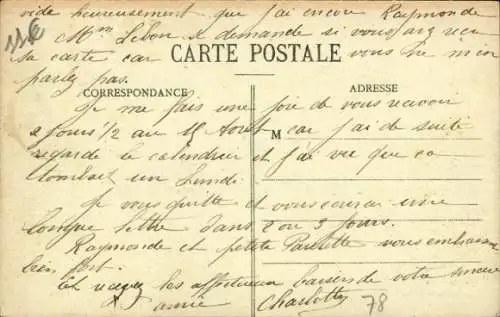 vide heureusement que j'ai encore Raymonde
Mme Lebon se demande si vous avez reçu
sa carte car vous ne m'en
parlez pas.
CARTE POSTALE
CORRESPONDANCE
ADRESSE
M
Je me fais une joie de vous revoir
2 jours 1/2 au 15 Août car j'ai de suite
regardé le calendrier et j'ai vu que ca
tombait un Lundi.
Je vous quitte et vous écrirai une
longue lettre dans 2 ou 3 jours.
Raymonde et petite Paulette vous embrassent
bien fort.
Et recevez les affectueux baisers de votre sincère
amie Charlotte
78